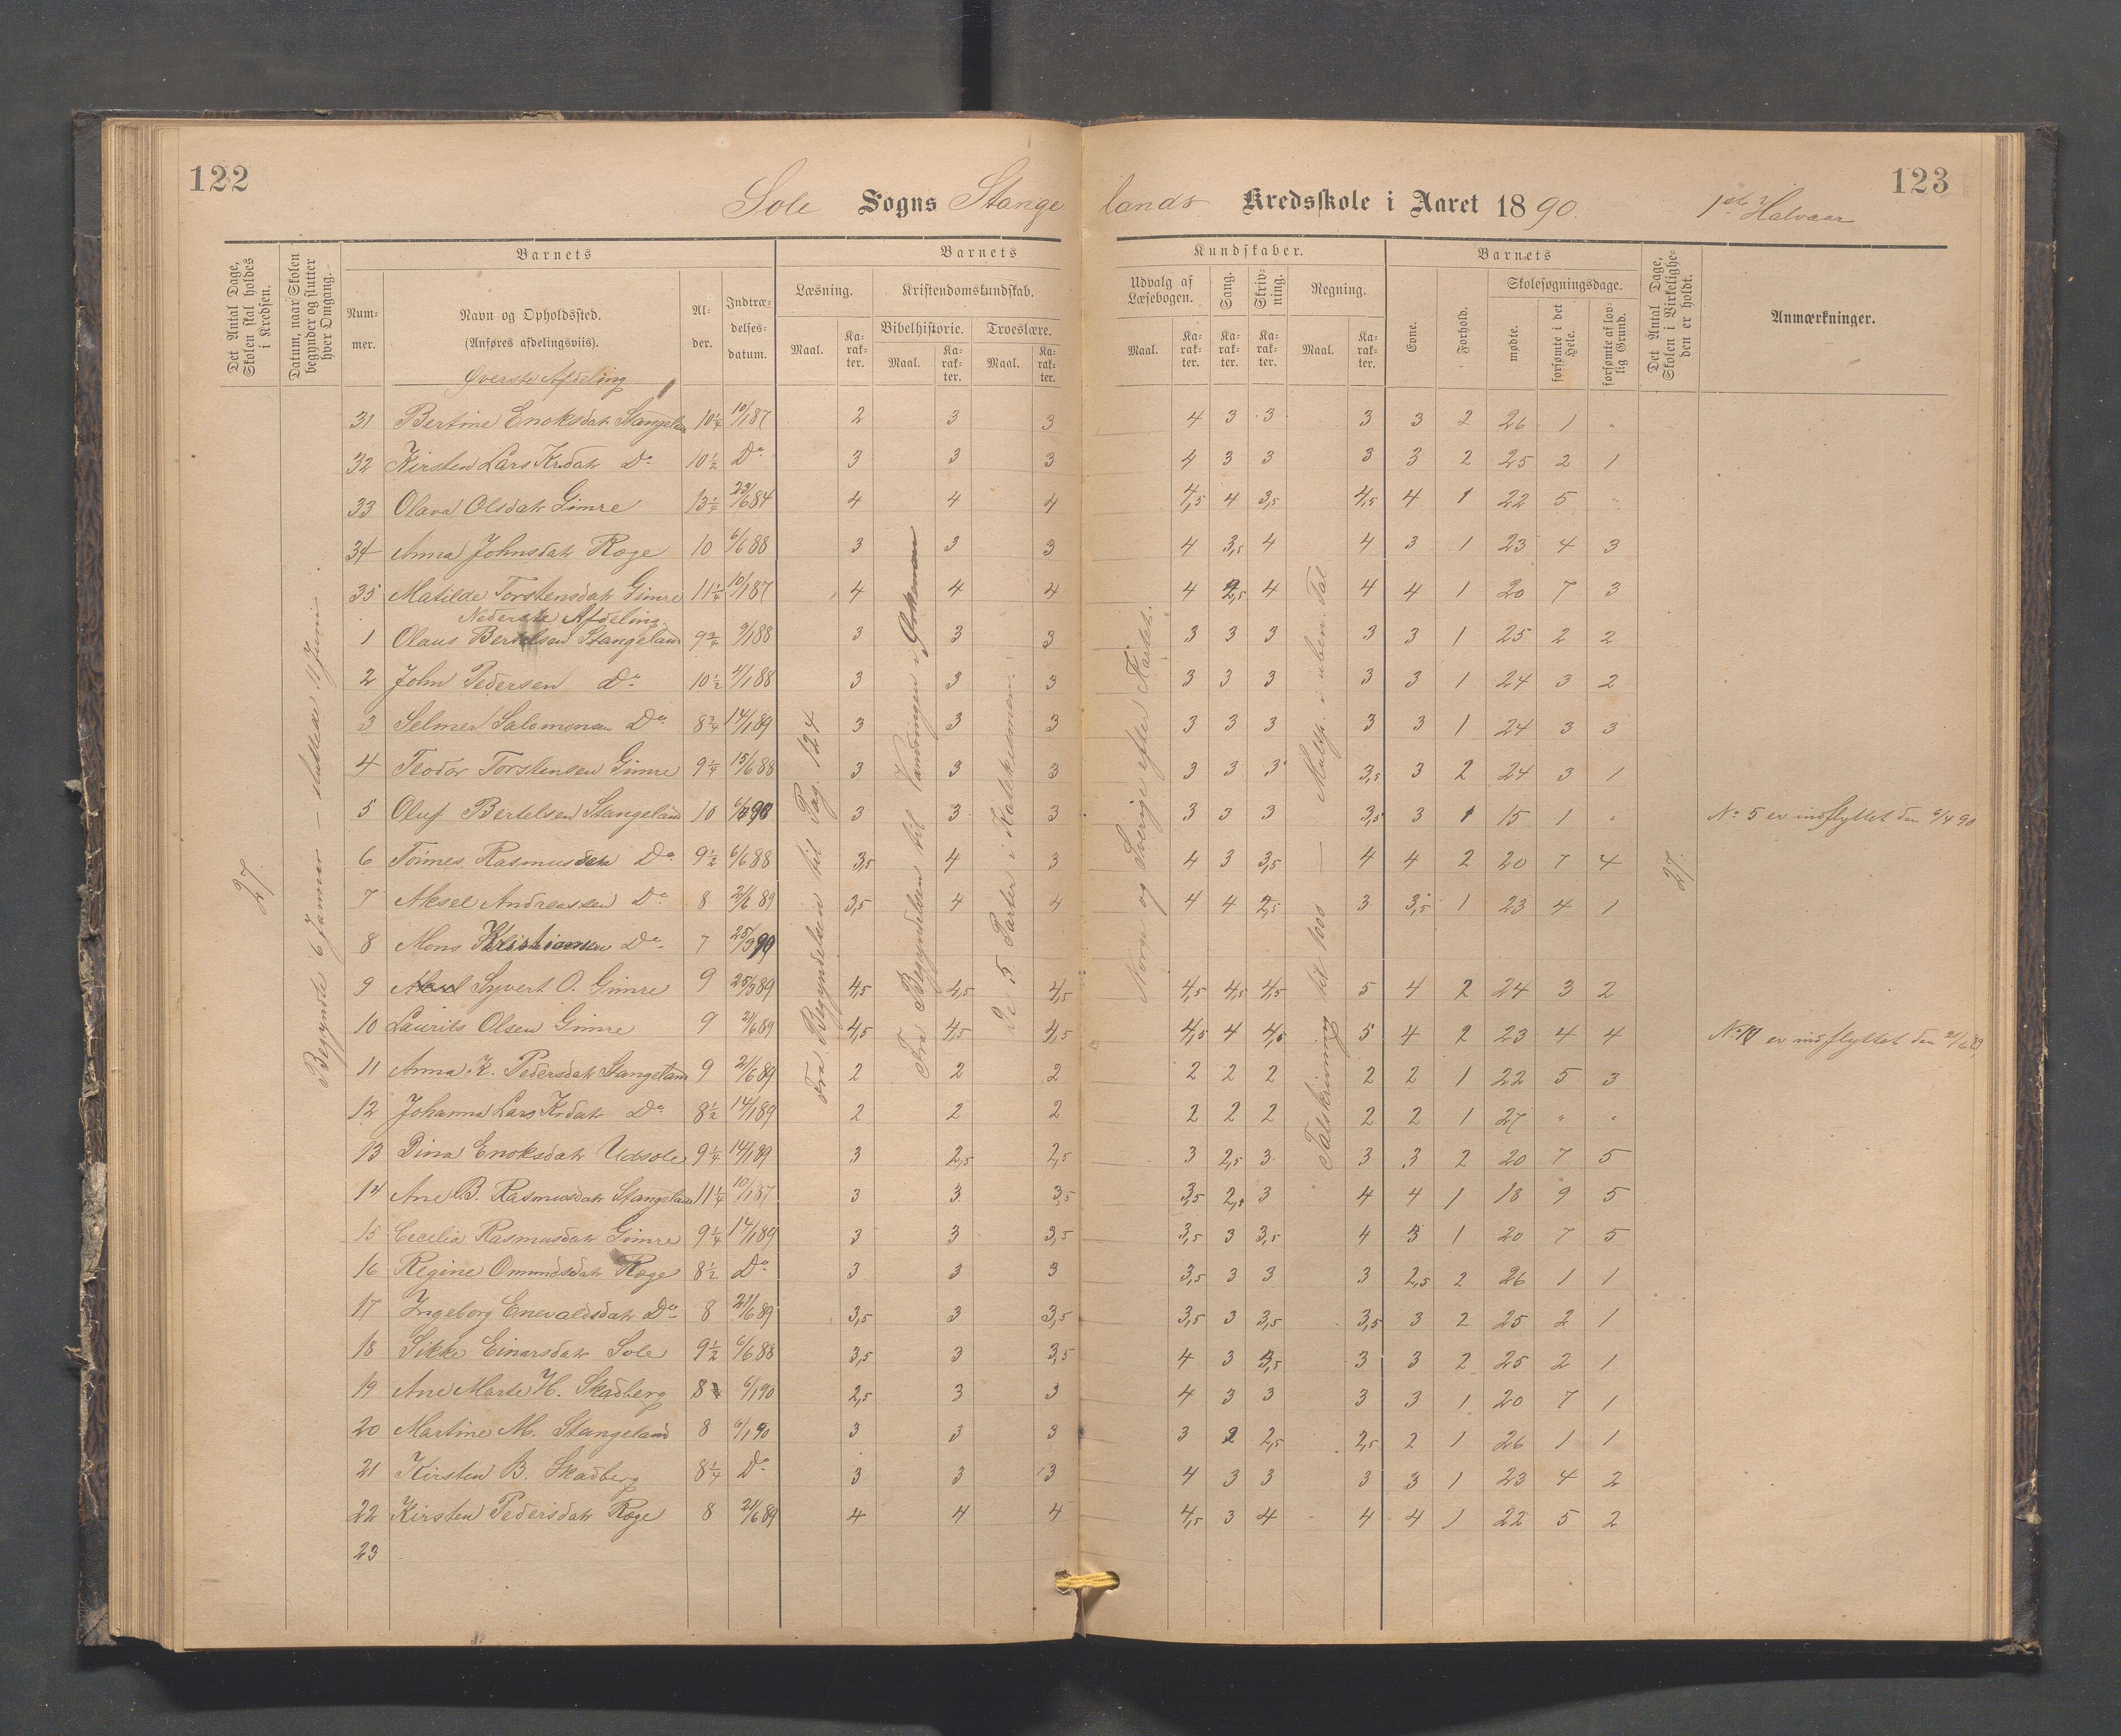 122
123
Sole Sogns Stangelands Kredsskole i Aaret 1890. 1ste Halvaar
Det Antal Dage, Skolen skal holdes i Kredsen.
Datum, naar Skolen begynder og slutter hver Omgang.
Barnets
Nummer.
Navn og Opholdssted.
(Anføres afdelingsviis).
Alder.
Indtrædelsesdatum.
Barnets Kundskaber.
Læsning.
Maal.
Karakter.
Kristendomskundskab.
Bibelhistorie.
Maal.
Karakter.
Troeslære.
Maal.
Karakter.
Udvalg af Læsebogen.
Maal.
Karakter.
Sang.
Karakter.
Skrivning.
Karakter.
Regning.
Maal.
Karakter.
Barnets
Evne.
Forhold.
Skolesøgningsdage.
mødte.
forsømte i det Hele.
forsømte af lovlig Grund.
Det Antal Dage, Skolen i Virkeligheden er holdt.
Anmærkninger.
Øverste Afdeling
31 Bertine Enoksdatr Stangeland 10 1/4 10/1 87 2 3 3 4 3 3 3 3 2 26 1 "
32 Kirsten Lars Krdatr Do 10 1/2 Do 3 3 3 4 3 3 3 3 2 25 2 1
33 Olava Olsdatr Gimre 13 1/4 23/6 84 4 4 4 4,5 4 3,5 4,5 4 1 22 5 "
34 Anna Johnsdatr Røge 10 6/6 88 3 3 3 4 3,5 4 4 3 1 23 4 3
35 Matilde Torstensdatr Gimre 11 1/4 10/1 87 4 4 4 4 2,5 4 4 4 1 20 7 3
Nederste Afdeling
1 Olaus Bertelsen Stangeland 9 3/4 9/1 88 3 3 3 3 3 3 3 3 1 25 2 2
2 John Pedersen Do 10 1/2 4/1 88 3 3 3 3 3 3 3 3 1 24 3 2
3 Selmer Salomonsen Do 8 3/4 14/1 89 3 3 3 3 3 3 3 3 1 24 3 3
4 Teodor Torstensen Gimre 9 1/4 15/6 88 3 3 3 3 3 3 3,5 3 2 24 3 1
5 Oluf Bertelsen Stangeland 10 6/4 90 3 3 3 3 3 3 3,5 3 1 15 1 " No 5 er indflyttet den 6/4 90
6 Tønnes Rasmusdatr Do 9 1/2 6/6 88 3,5 4 3 4 3 3,5 4 4 2 20 7 4
7 Aksel Andreassen Do 8 21/6 89 3,5 4 4 4 4 2,5 3 3,5 1 23 4 1
8 Mons Kristiansen Do 7 25/3 90
9 Syvert O. Gimre 9 25/3 89 4,5 4,5 4,5 4,5 4,5 4,5 5 4 2 24 3 2
10 Laurits Olsen Gimre 9 21/6 89 4,5 4,5 4,5 4,5 4 4,5 5 4 2 23 4 4 er indflyttet den 21/6 89
11 Anna K. Pedersdatr Stangeland 9 21/6 89 2 2 2 2 2 2 2 2 1 22 5 3
12 Johanna Lars Krdatr Do 8 1/2 14/1 89 2 2 2 2 2 2 2 2 1 27 " "
13 Dina Enoksdatr Udsole 9 1/4 14/1 89 3 2,5 2,5 3 2,5 3 3 3 2 20 7 5
14 Ane B. Rasmusdatr Stangeland 11 1/4 10/1 87 3 3 3,5 3,5 2, 3 4 4 1 18 9 5
15 Cecilia Rasmusdatr Gimre 9 1/4 14/1 89 3 3 3,5 3,5 3 3,5 4 3 1 20 7 5
16 Regine Ommdsdatr Røge 8 1/2 Do 3 3 3 3,5 3 3 3 2,5 2 26 1 1
17 Ingeborg Enevaldsdatr Do 8 21/6 89 3,5 3 3,5 3,5 3 3,5 3,5 3 2 25 2 1
18 Sikke Einarsdatr Sole 9 1/2 6/6 88 3,5 3 3,5 4 3 3,5 3 3 2 25 2 1
19 Ane Marte H. Skadberg 8 6/1 90 2,5 3 3 4 3 3 3 3 1 20 7 1
20 Martine M. Stangeland 8 6/1 90 3 3 3 3 2 2,5 2,5 2 1 26 1 1
21 Kirsten B. Skadberg 8 1/4 Do 3 3 3 4 3 3 3 3 1 23 4 2
22 Kirsten Pedersdatr Røge 8 21/6 89 4 4 4 4,5 3 4 4 4 1 22 5 2
23
27.
Begyndte 6 Januar – sluttede 11 Juni.
Fra Begyndelsen til Pag. 124
Fra Begyndelsen til Vandringen i Ørkenen
De 5 Parter i Katekismen.
Norge og Sverige efter Kartet.
Talskrivning til 1000 — Multip. i uben. Tal
27.